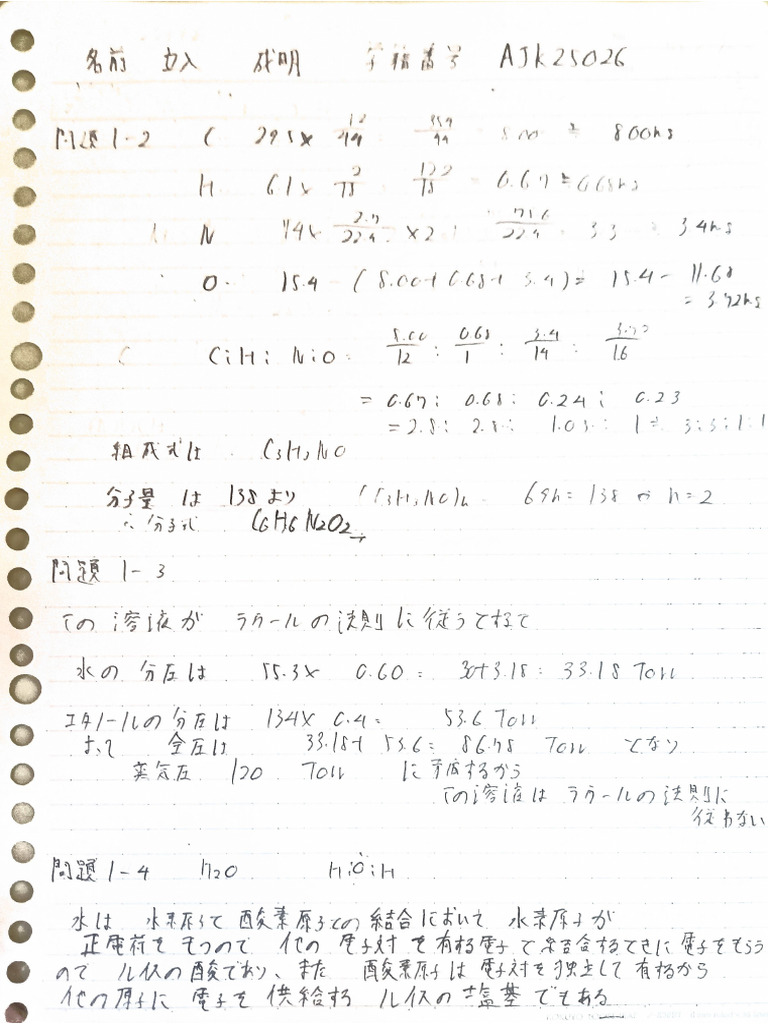 名前 立入 成明 学籍番号 AJK25026
問題1-2 C 29.5× 12/44 354/44 8.00 ≒ 8.00mg
H 6.1× 2/18 122/18 = 0.67 ≒ 0.68mg
N 74× 22.4 ×2 22.4 3.3 3.4mg
O 15.4 - (8.00+0.68+3.4) = 15.4 - 11.68
= 3.72mg
C:H:N:O = 8.00/12 : 0.68/1 : 3.4/14 : 3.72/16
= 0.67: 0.68: 0.24: 0.23
= 2.8: 2.8: 1.03: 1 ≒ 3:3:1:1
組成式は C3H3NO
分子量 は 138 より (C3H3NO)n 69n=138 n=2
∴ 分子式 C6H6N2O2
問題 1-3
この 溶液が ラウールの法則に従うとすると
水の 分圧は 55.3× 0.60= 30+3.18= 33.18 Torr
エタノールの分圧は 134× 0.4= 53.6 Torr
よって 全圧は 33.18+ 53.6= 86.78 Torr となり
蒸気圧 120 Torr に矛盾するから
この溶液は ラウールの法則に
従わない
問題1-4 H2O H:O:H
水は 水素原子と酸素原子との結合において 水素原子が
正電荷をもつので 他の 電子対 を有する電子と結合するときに電子をもらう
ので ルイスの酸であり、また 酸素原子は電子対を独立して有するから
他の原子に 電子を 供給する ルイスの塩基でもある